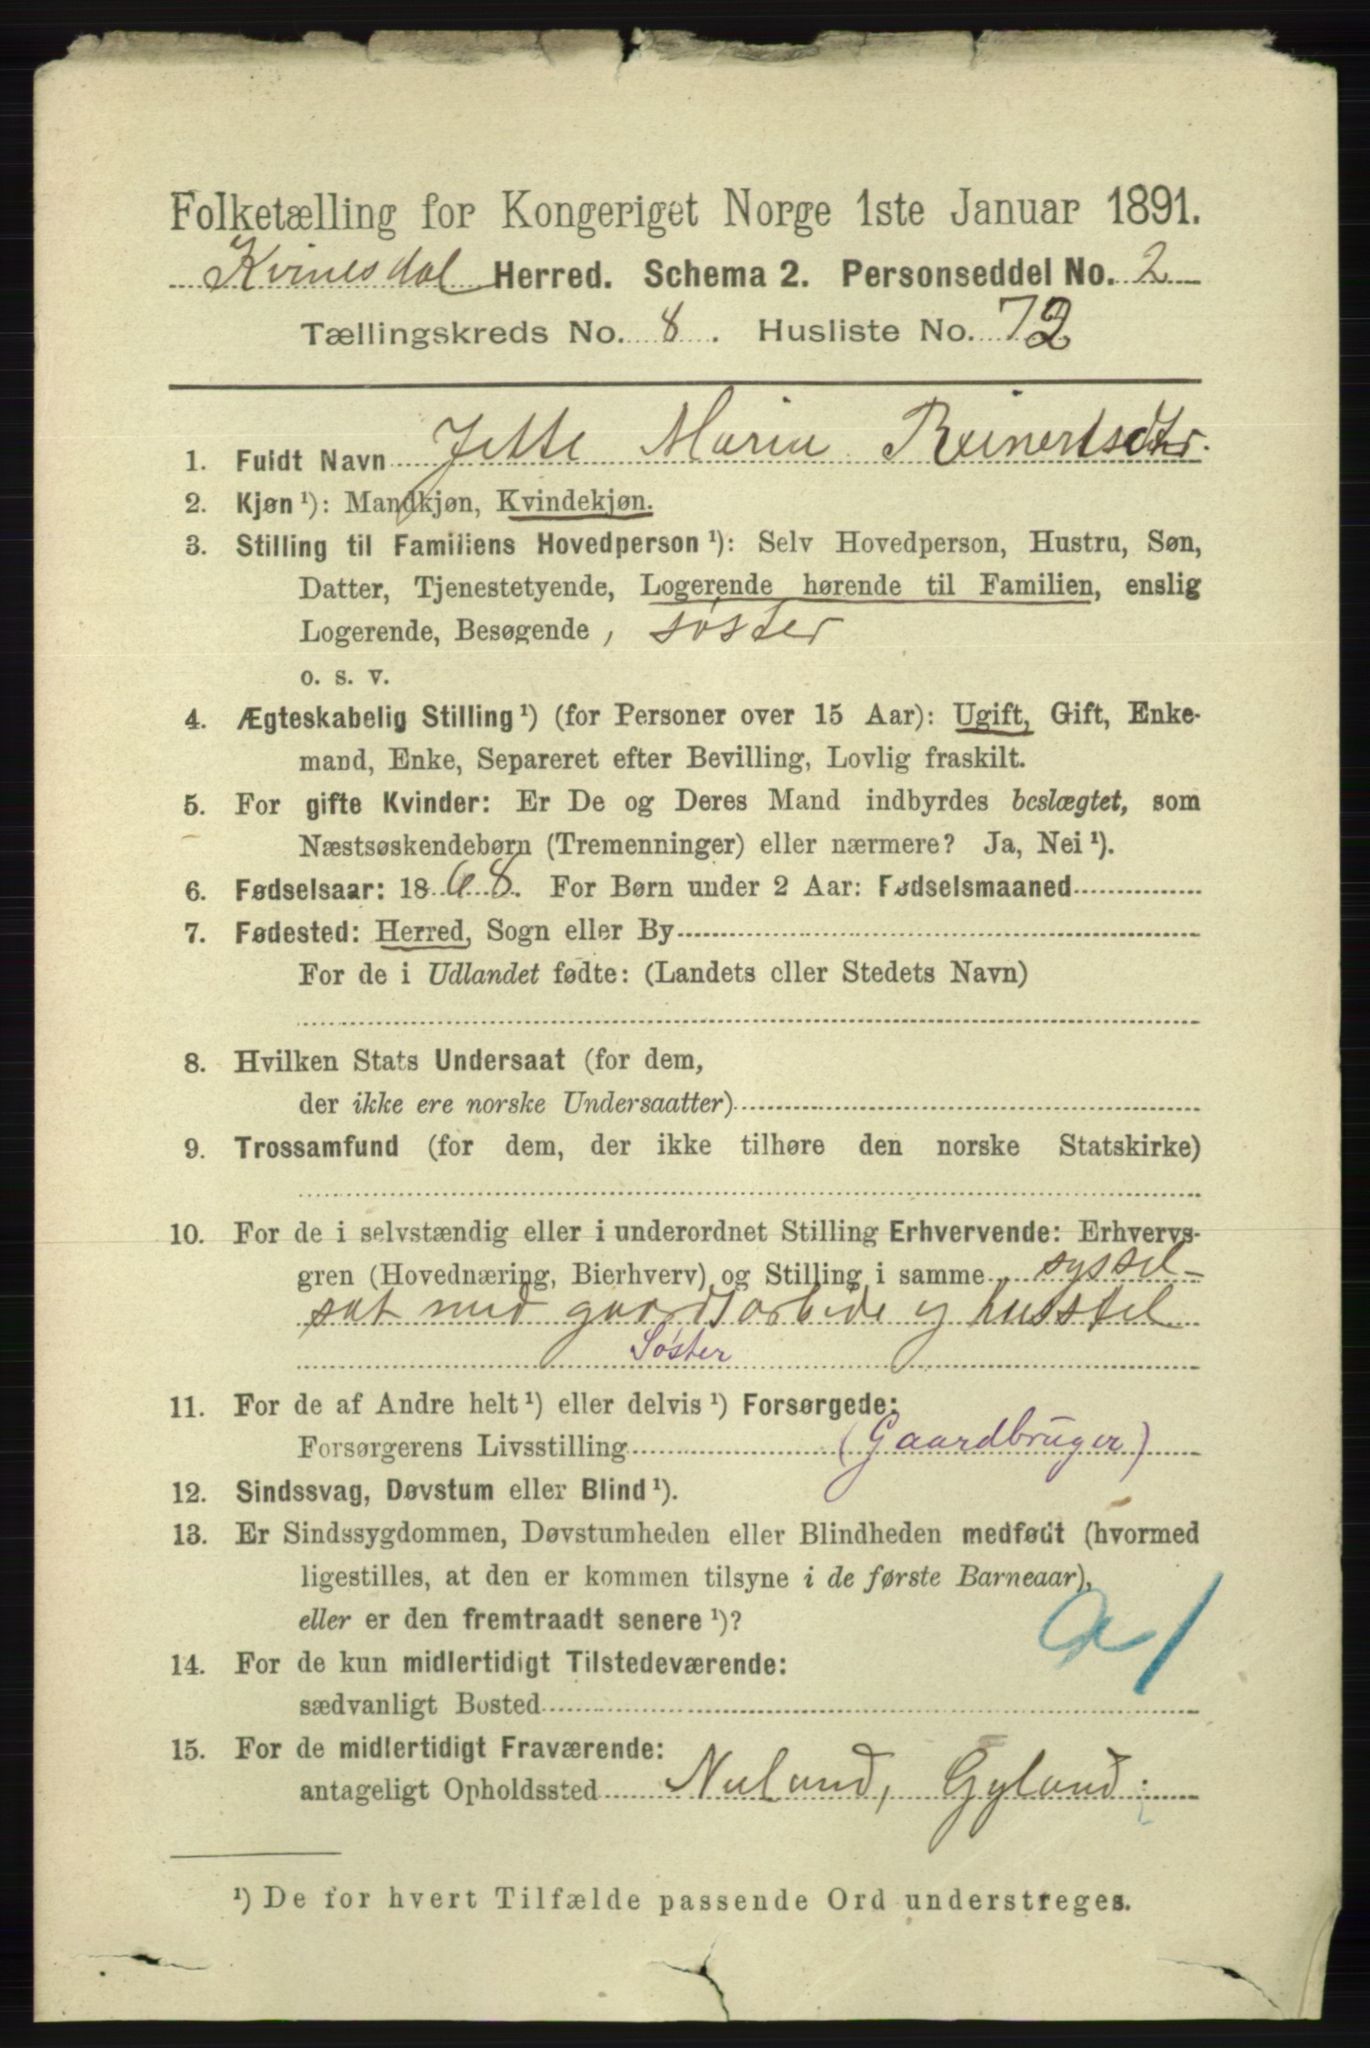 Folketælling for Kongeriget Norge 1ste Januar 1891.
Kvinesdal Herred. Schema 2. Personseddel No. 2
Tællingskreds No. 8. Husliste No. 72
1. Fuldt Navn Jette Maria Reinertsdtr.
2. Kjøn ¹): Mandkjøn, Kvindekjøn.
3. Stilling til Familiens Hovedperson ¹): Selv Hovedperson, Hustru, Søn,
Datter, Tjenestetyende, Logerende hørende til Familien, enslig
Logerende, Besøgende, søster
o. s. v.
4. Ægteskabelig Stilling ¹) (for Personer over 15 Aar): Ugift, Gift, Enke-
mand, Enke, Separeret efter Bevilling, Lovlig fraskilt.
5. For gifte Kvinder: Er De og Deres Mand indbyrdes beslægtet, som
Næstsøskendebørn (Tremenninger) eller nærmere? Ja, Nei ¹).
6. Fødselsaar: 1868. For Børn under 2 Aar: Fødselsmaaned
7. Fødested: Herred, Sogn eller By
For de i Udlandet fødte: (Landets eller Stedets Navn)
8. Hvilken Stats Undersaat (for dem,
der ikke ere norske Undersaatter)
9. Trossamfund (for dem, der ikke tilhøre den norske Statskirke)
10. For de i selvstændig eller i underordnet Stilling Erhvervende: Erhvervs-
gren (Hovednæring, Bierhverv) og Stilling i samme syssel-
sat med gaardsarbeide og husstel
Søster
11. For de af Andre helt ¹) eller delvis ¹) Forsørgede:
Forsørgerens Livsstilling (Gaardbruger)
12. Sindssvag, Døvstum eller Blind ¹).
13. Er Sindssygdommen, Døvstumheden eller Blindheden medfødt (hvormed
ligestilles, at den er kommen tilsyne i de første Barneaar),
eller er den fremtraadt senere ¹)?
a 1
14. For de kun midlertidigt Tilstedeværende:
sædvanligt Bosted
15. For de midlertidigt Fraværende:
antageligt Opholdssted Nuland, Gyland
¹) De for hvert Tilfælde passende Ord understreges.